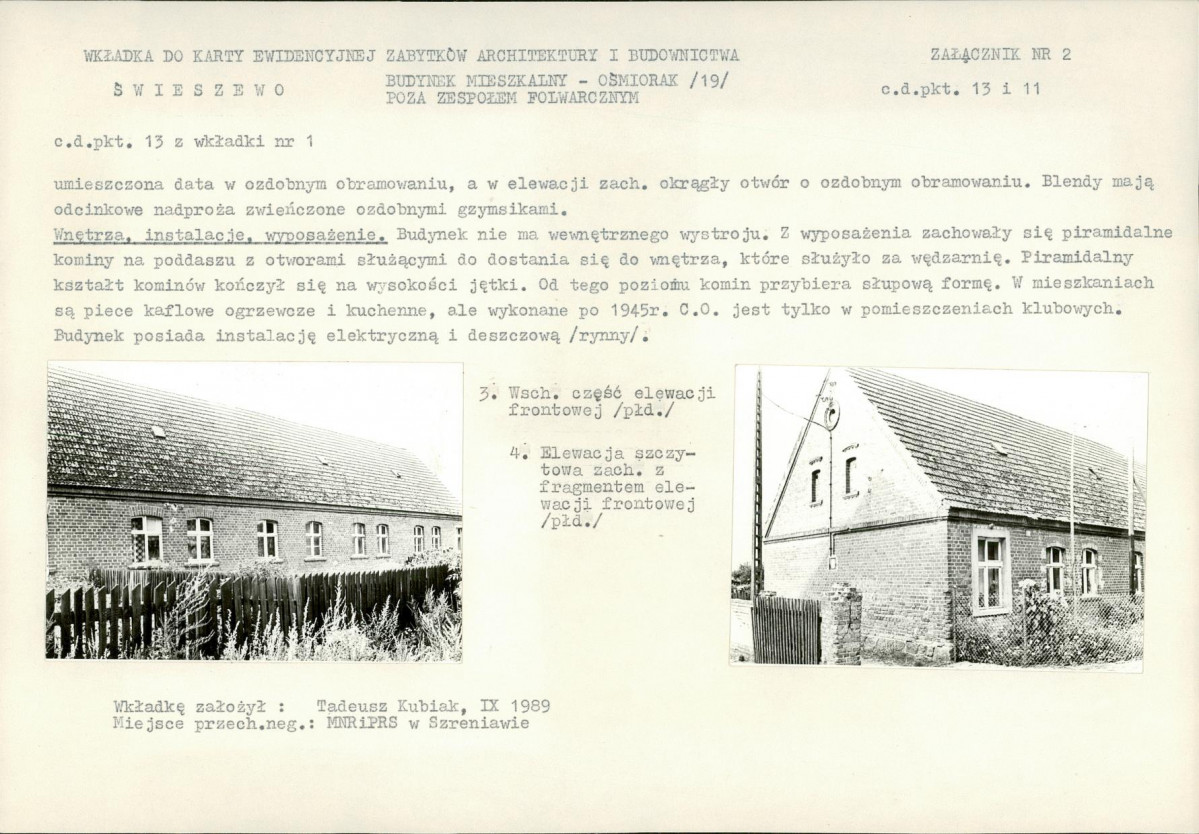 WKŁADKA DO KARTY EWIDENCYJNEJ ZABYTKÓW ARCHITEKTURY I BUDOWNICTWA
ZAŁĄCZNIK NR 2
ŚWIESZEWO
BUDYNEK MIESZKALNY - OŚMIORAK /19/
POZA ZESPOŁEM FOLWARCZNYM
c.d.pkt. 13 i 11
c.d.pkt. 13 z wkładki nr 1
umieszczona data w ozdobnym obramowaniu, a w elewacji zach. okrągły otwór o ozdobnym obramowaniu. Blendy mają
odcinkowe nadproża zwieńczone ozdobnymi gzymsikami.
Wnętrza, instalacje, wyposażenie. Budynek nie ma wewnętrznego wystroju. Z wyposażenia zachowały się piramidalne
kominy na poddaszu z otworami służącymi do dostania się do wnętrza, które służyło za wędzarnię. Piramidalny
kształt kominów kończył się na wysokości jętki. Od tego poziomu komin przybiera słupową formę. W mieszkaniach
są piece kaflowe ogrzewcze i kuchenne, ale wykonane po 1945r. C.O. jest tylko w pomieszczeniach klubowych.
Budynek posiada instalację elektryczną i deszczową /rynny/.
3. Wsch. część elewacji
frontowej /płd./
4. Elewacja szczy-
towa zach. z
fragmentem ele-
wacji frontowej
/płd./
Wkładkę założył : Tadeusz Kubiak, IX 1989
Miejsce przech.neg.: MNRiPRS w Szreniawie